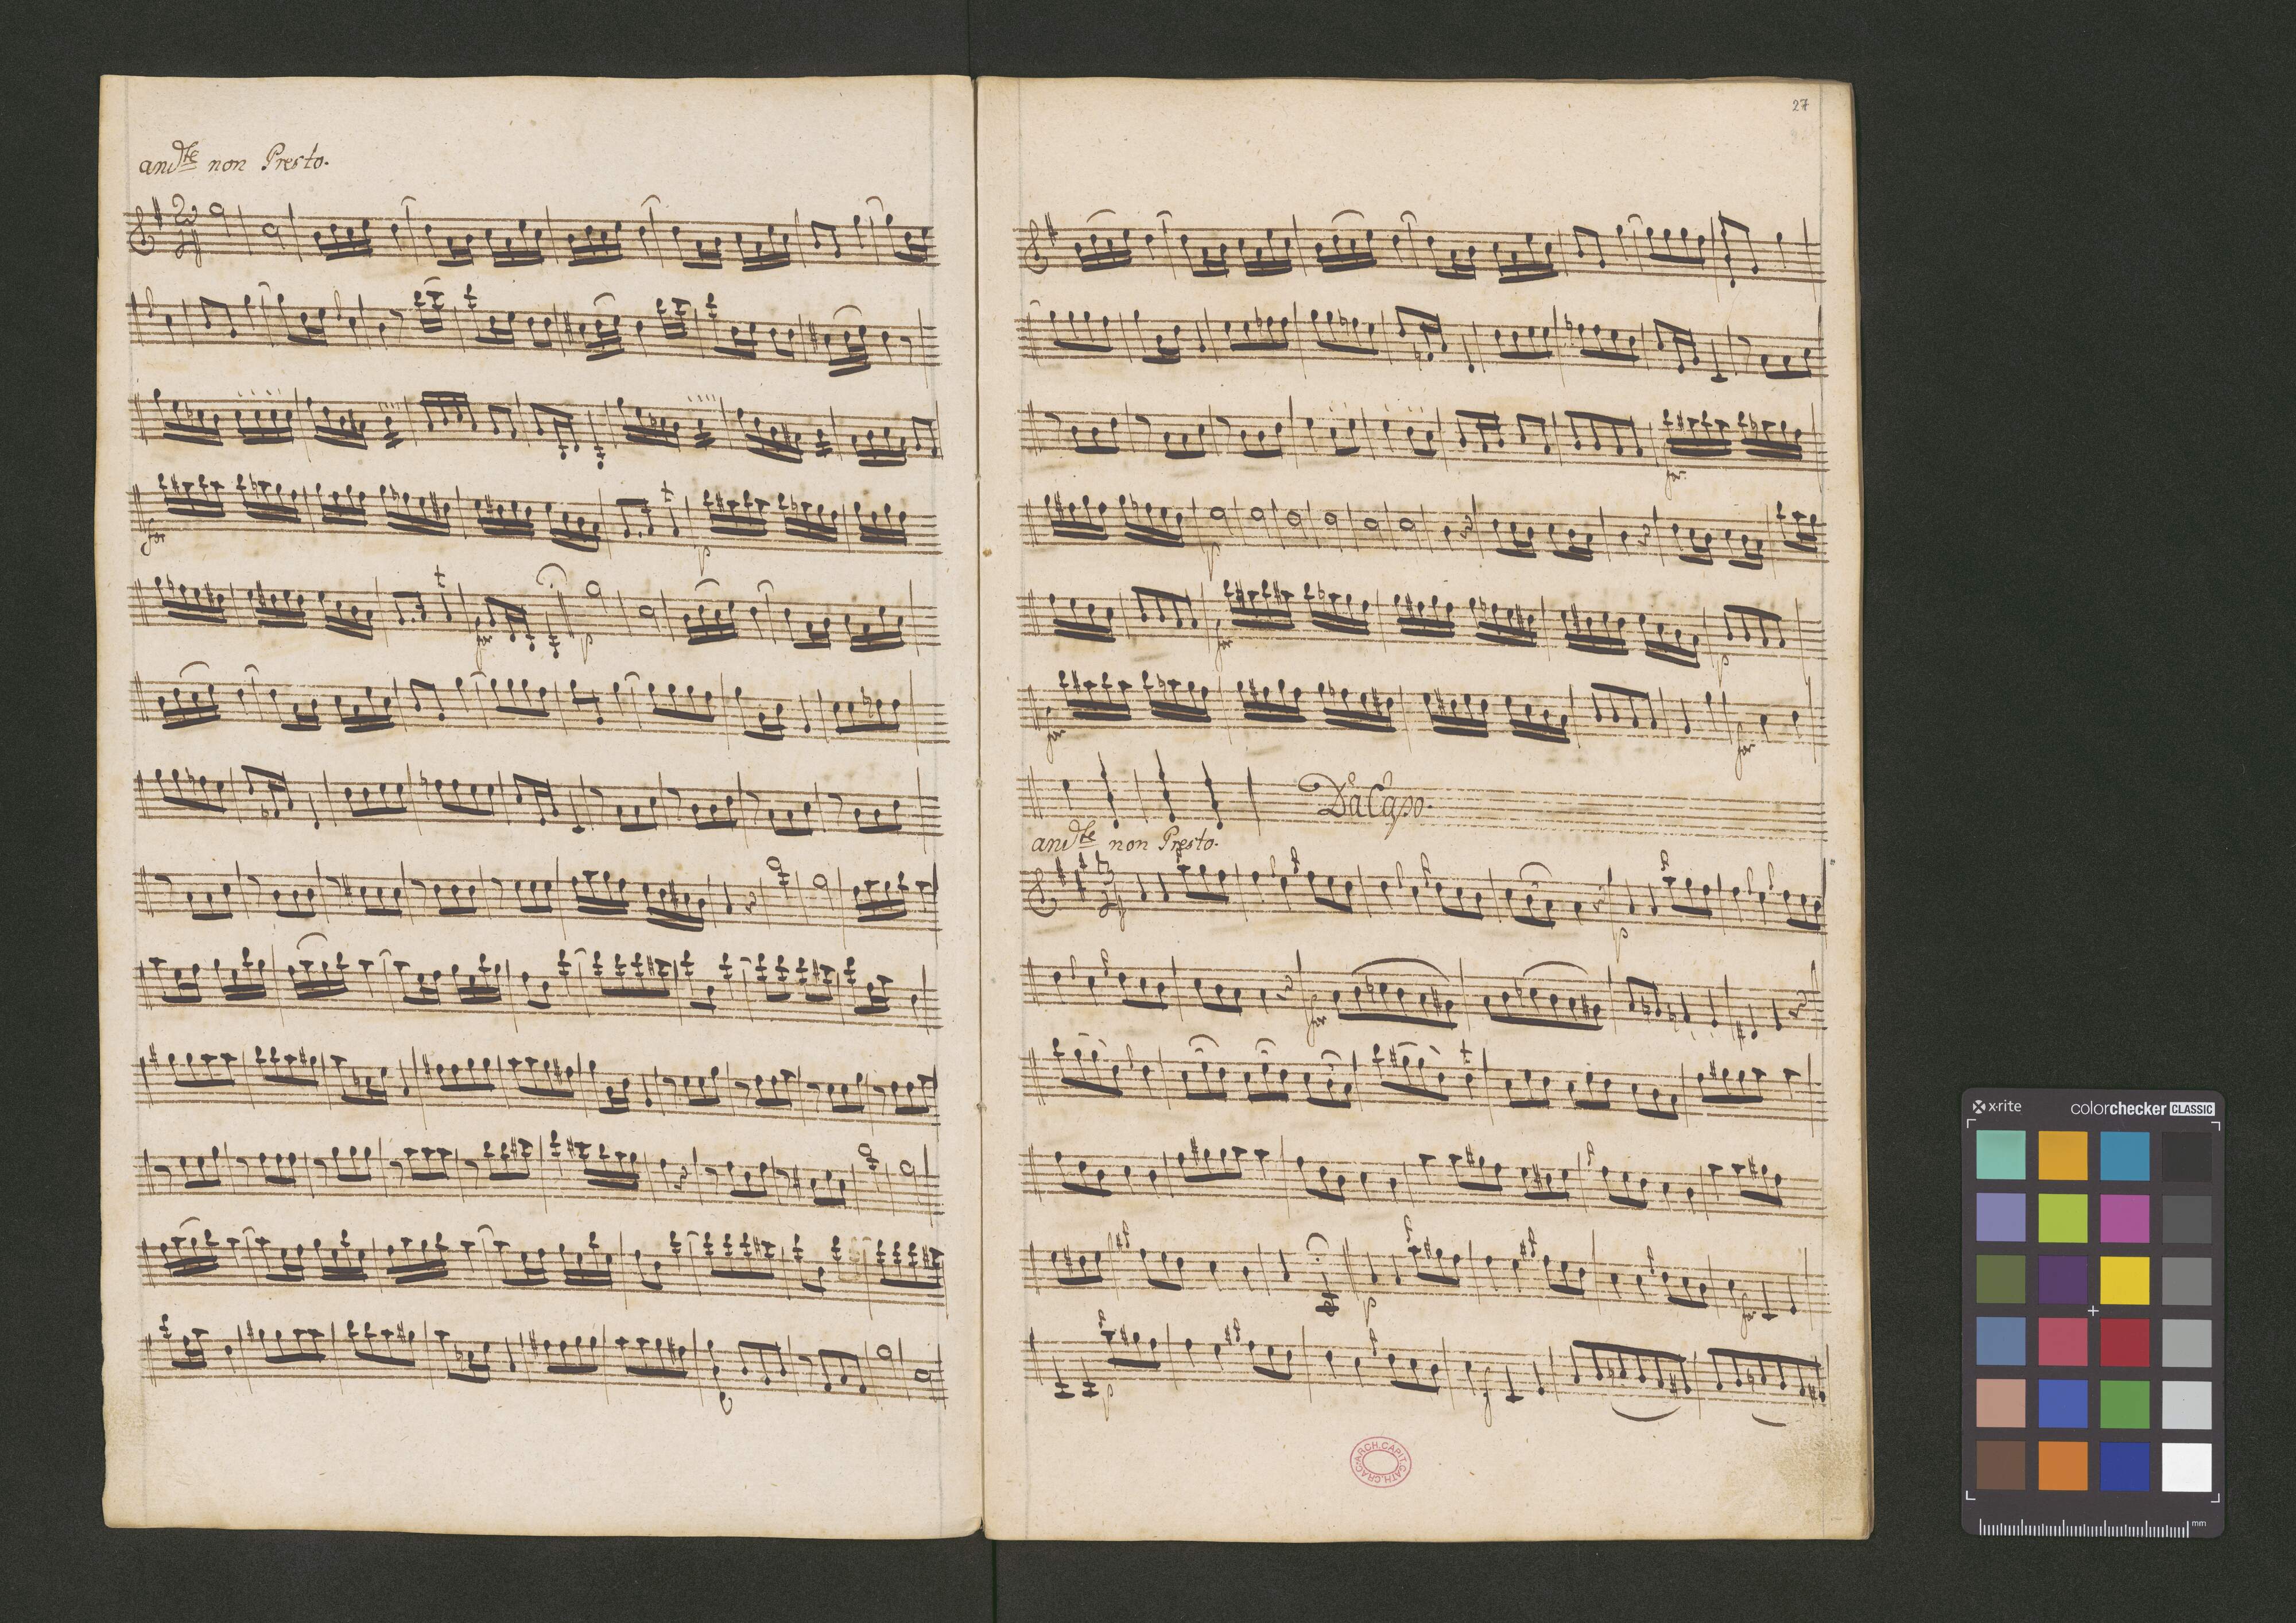 and.te non Presto.
for
p
for
p
27
for
p
for
p
for
for
Da Capo.
and.te non Presto.
p
for
p
for
p
f
ARCH.CAPIT.CATH.CRAC.
x-rite
colorchecker CLASSIC
mm